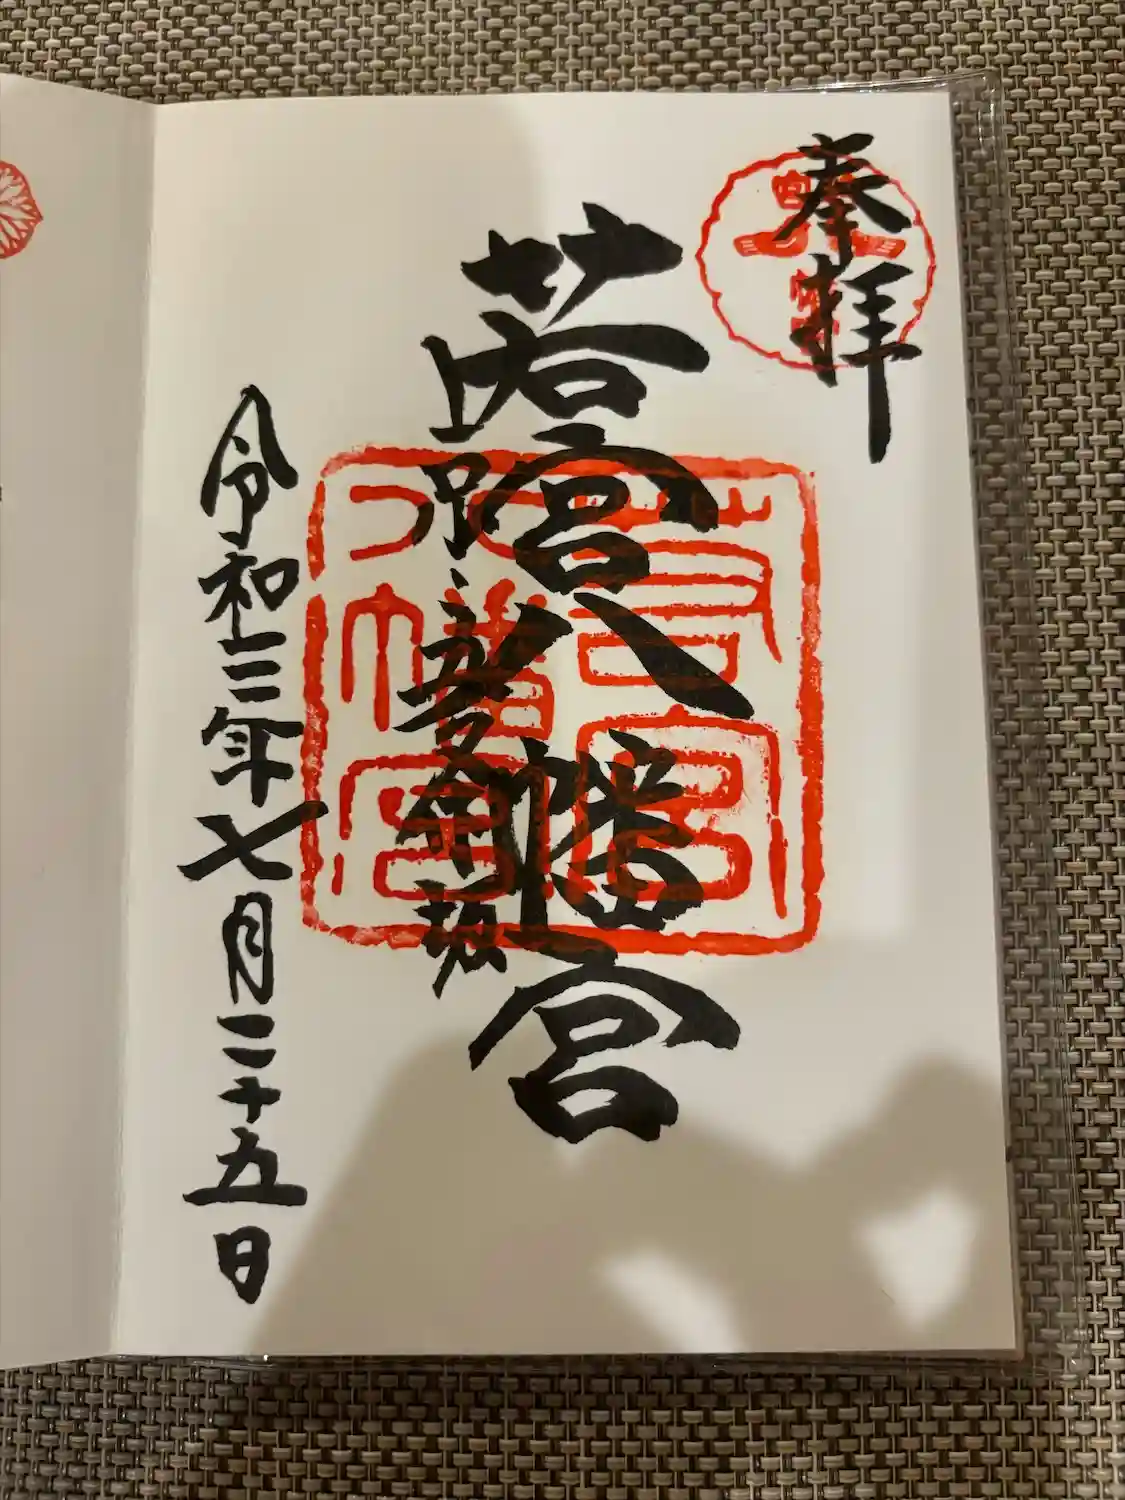 奉拝
若宮八幡宮
若宮
八幡宮
令和三年七月二十五日